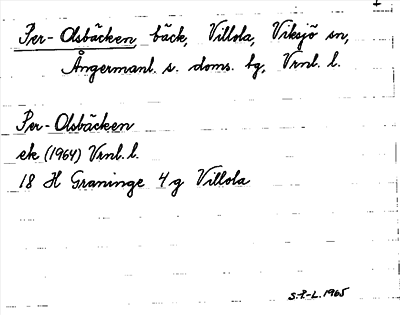 Per-Olsbäcken, bäck, Villola, Viksjö sn,
Ångermanl. s. doms. bg, Vrnl. l.
Per-Olsbäcken
ek (1964) Vrnl. l.
18 H Graninge 4g Villola
S.P-L. 1965